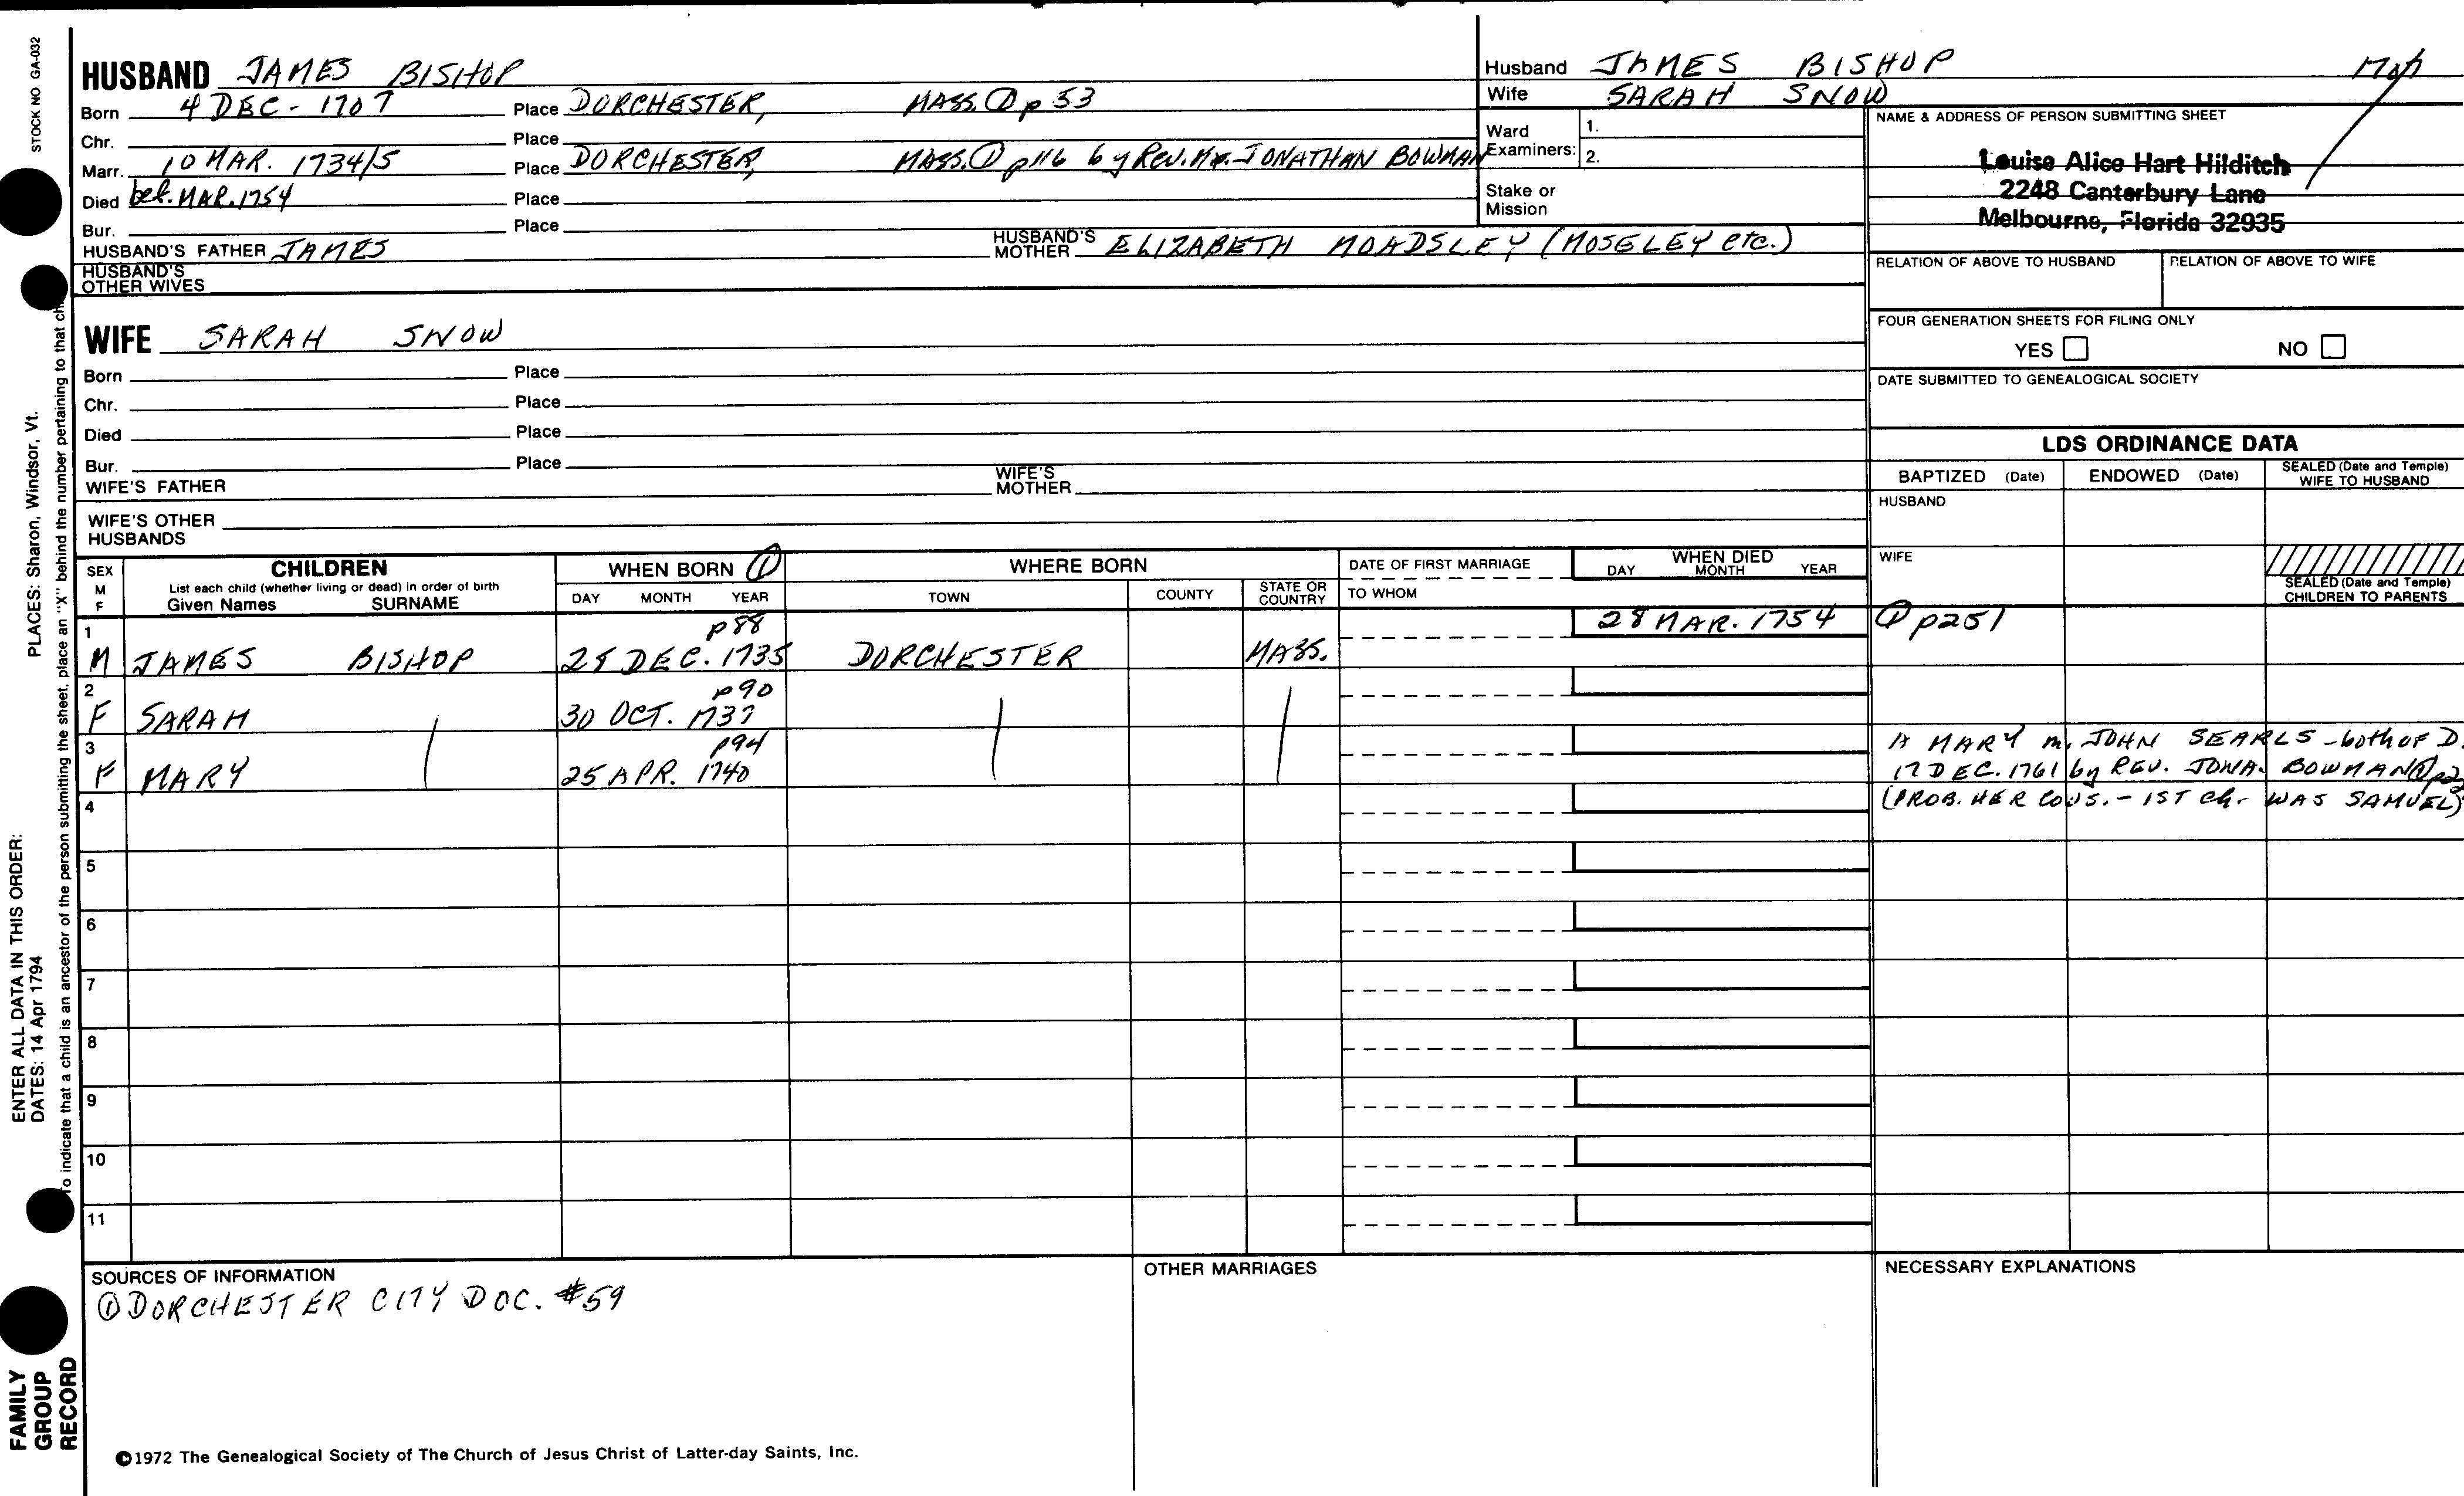 STOCK NO. GA-032
HUSBAND JAMES BISHOP
Born 4 DEC - 1707 Place DORCHESTER, MASS. ① p 53
Chr. Place
Marr. 10 MAR. 1734/5 Place DORCHESTER, MASS. ① p116 by Rev. Mr. JONATHAN BOWMAN
Died bef. MAR. 1754 Place
Bur. Place
HUSBAND'S FATHER JAMES HUSBAND'S MOTHER ELIZABETH MOADSLEY (MOSELEY etc.)
HUSBAND'S OTHER WIVES
Husband JAMES BISHOP
Wife SARAH SNOW
Ward Examiners: 1.
2.
Stake or Mission
NAME & ADDRESS OF PERSON SUBMITTING SHEET
Louise Alice Hart Hilditch
2248 Canterbury Lane
Melbourne, Florida 32935
RELATION OF ABOVE TO HUSBAND RELATION OF ABOVE TO WIFE
FOUR GENERATION SHEETS FOR FILING ONLY
YES NO
DATE SUBMITTED TO GENEALOGICAL SOCIETY
WIFE SARAH SNOW
Born Place
Chr. Place
Died Place
Bur. Place
WIFE'S FATHER WIFE'S MOTHER
WIFE'S OTHER HUSBANDS
LDS ORDINANCE DATA
BAPTIZED (Date) ENDOWED (Date) SEALED (Date and Temple) WIFE TO HUSBAND
HUSBAND
WIFE
SEALED (Date and Temple) CHILDREN TO PARENTS
SEX M F
CHILDREN
List each child (whether living or dead) in order of birth
Given Names SURNAME
WHEN BORN ①
DAY MONTH YEAR
WHERE BORN
TOWN COUNTY STATE OR COUNTRY
DATE OF FIRST MARRIAGE
TO WHOM
WHEN DIED
DAY MONTH YEAR
1 p88 28 MAR. 1754 ① p251
M JAMES BISHOP 28 DEC. 1735 DORCHESTER MASS.
2 p90
F SARAH 30 OCT. 1737
3 p94 A MARY m. JOHN SEARLS - both of D.
F MARY 25 APR. 1740 17 DEC. 1761 by REV. JONA. BOWMAN ①
4 (PROB. HER COUS. - 1ST ch. WAS SAMUEL)
5
6
7
8
9
10
11
SOURCES OF INFORMATION
① DORCHESTER CITY DOC. #59
OTHER MARRIAGES
NECESSARY EXPLANATIONS
©1972 The Genealogical Society of The Church of Jesus Christ of Latter-day Saints, Inc.
FAMILY GROUP RECORD
ENTER ALL DATA IN THIS ORDER:
DATES: 14 Apr 1794
PLACES: Sharon, Windsor, Vt.
To indicate that a child is an ancestor of the person submitting the sheet, place an "X" behind the number pertaining to that